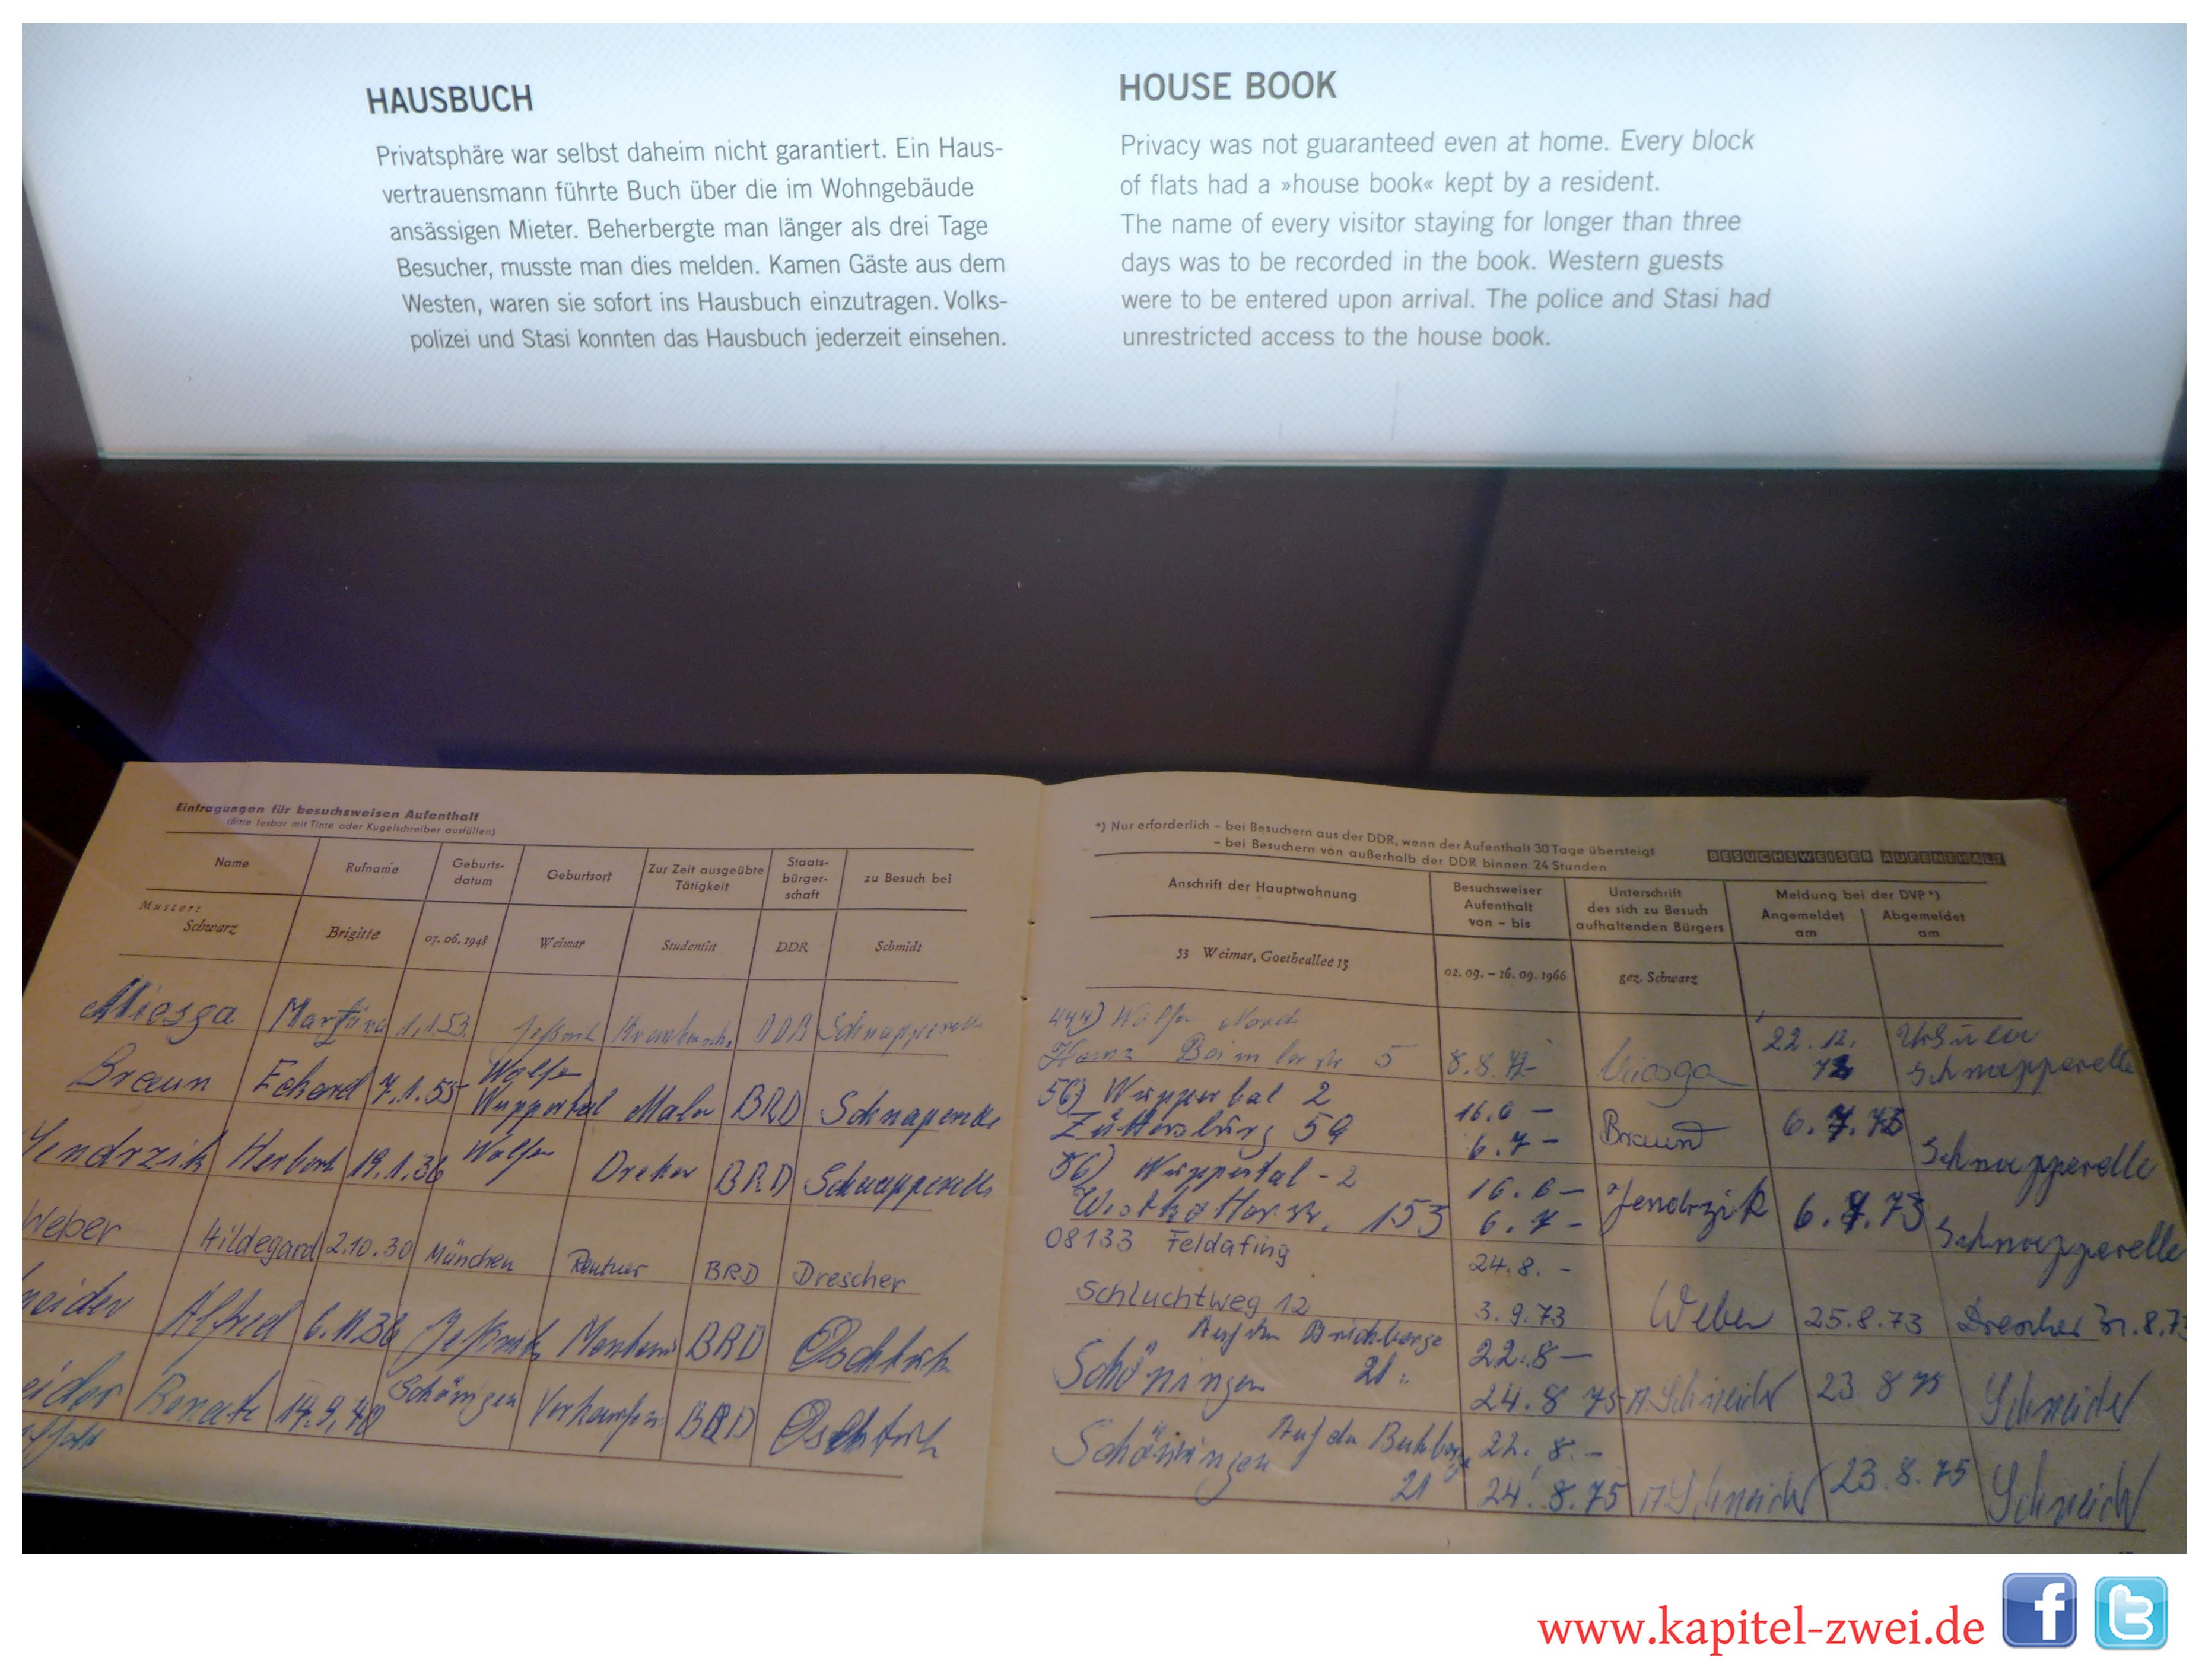 HAUSBUCH
Privatsphäre war selbst daheim nicht garantiert. Ein Haus-
vertrauensmann führte Buch über die im Wohngebäude
ansässigen Mieter. Beherbergte man länger als drei Tage
Besucher, musste man dies melden. Kamen Gäste aus dem
Westen, waren sie sofort ins Hausbuch einzutragen. Volks-
polizei und Stasi konnten das Hausbuch jederzeit einsehen.
HOUSE BOOK
Privacy was not guaranteed even at home. Every block
of flats had a »house book« kept by a resident.
The name of every visitor staying for longer than three
days was to be recorded in the book. Western guests
were to be entered upon arrival. The police and Stasi had
unrestricted access to the house book.
Eintragungen für besuchsweisen Aufenthalt
(Bitte lesbar mit Tinte oder Kugelschreiber ausfüllen)
Name Rufname Geburts-datum Geburtsort Zur Zeit ausgeübte Tätigkeit Staats-bürger-schaft zu Besuch bei
Muster:
Schwarz Brigitte 07.06.1948 Weimar Studentin DDR Schmidt
Miesga Martina 1.1.53 DDR
Braun Eckard 7.1.55 Wolfen
Wuppertal Maler BRD
Jendrzik Herbert 19.1.36 Wolfen Dreher BRD Schnapperelle
Weber Hildegard 2.10.30 München Rentner BRD Drescher
Alfred 6.11.36 Jeßnitz BRD
Renate 14.9.40 Schöningen BRD
*) Nur erforderlich – bei Besuchern aus der DDR, wenn der Aufenthalt 30 Tage übersteigt
– bei Besuchern von außerhalb der DDR binnen 24 Stunden
BESUCHSWEISER AUFENTHALT
Anschrift der Hauptwohnung Besuchsweiser Aufenthalt von – bis Unterschrift des sich zu Besuch aufhaltenden Bürgers Meldung bei der DVP *)
Angemeldet am Abgemeldet am
53 Weimar, Goetheallee 15 02.09. – 16.09.1966 gez. Schwarz
444) Wolfen Nord 22.12. Ursula
5 8.8.72- Miesga 72 Schnapperelle
56) Wuppertal 2 16.6 –
59 6.7 – Braun 6.7.73 Schnapperelle
56) Wuppertal - 2 16.6 –
153 6.7 - Jendrzik 6.7.73 Schnapperelle
08133 Feldafing 24.8. -
Schluchtweg 12 3.9.73 Weber 25.8.73 Drescher
Auf dem 22.8 –
Schöningen 21 24.8 75 A Schneider 23 8 75 Schneider
Schöningen Auf dem 22.8. -
21 24.8.75 A Schneider 23.8.75 Schneider
www.kapitel-zwei.de